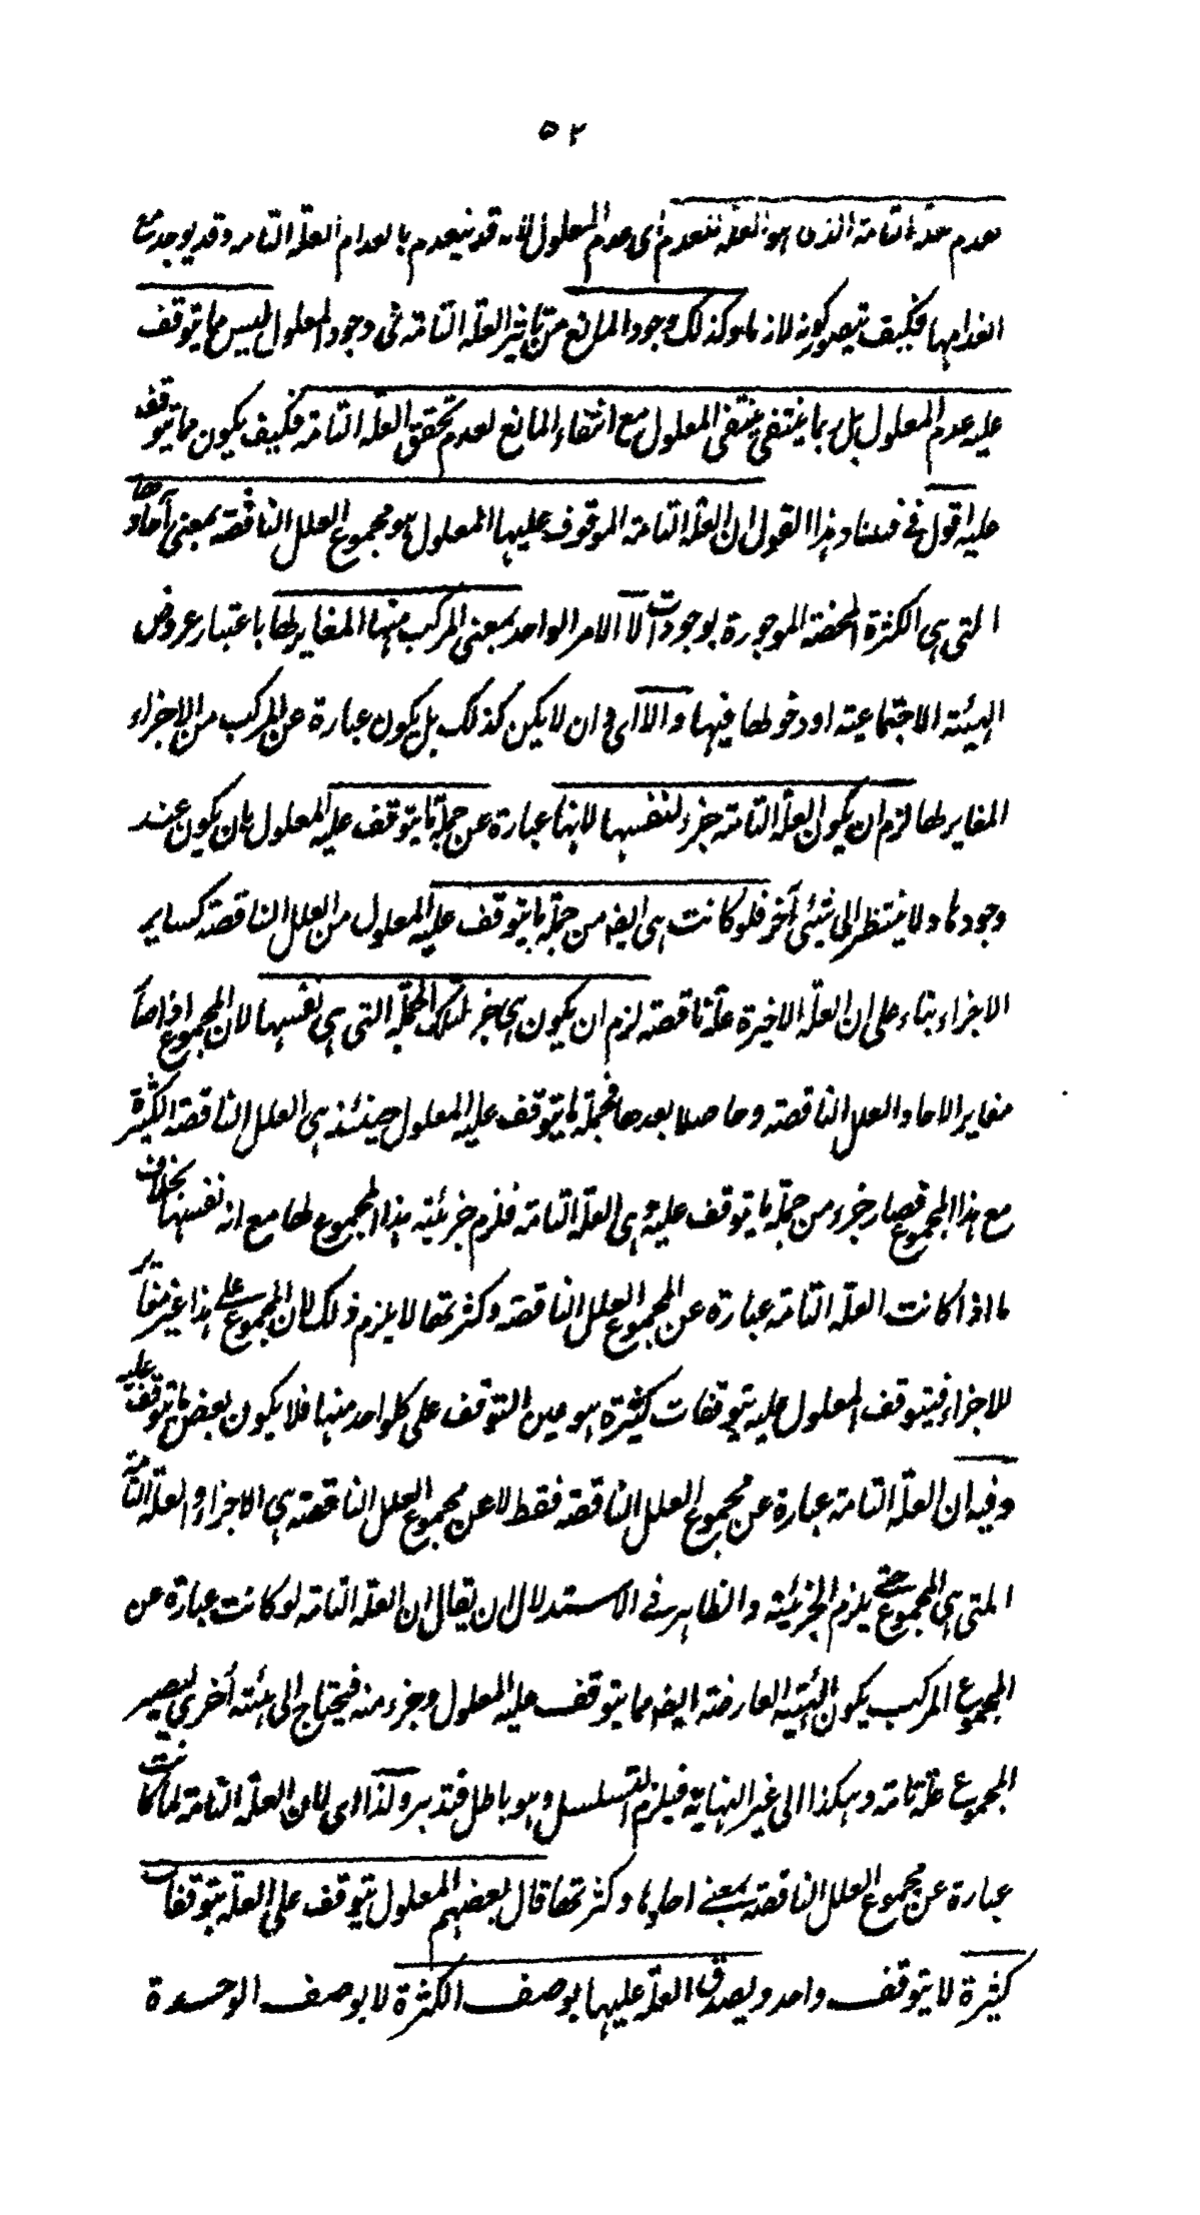 ٥٢
لعدم علة التامة الذى هو العلة لنعدم اى عدم المعلول لانه قد ينعدم بانعدام العلة التامه وقد يوجد مع
انعدامها فكيف يتصور كونه لازما وكذلك وجود المانع من تاثير العلة التامة فى وجود المعلول ليس مما يتوقف
عليه عدم المعلول بل ربما ينتفى ينتفى المعلول مع انتفاء المانع لعدم تحقق العلة التامة فكيف يكون مما يتوقف
عليه اقول فى هذا القول ان العلة التامة الموقوف عليها المعلول هو مجموع العلل الناقصة بمعنى آحادها
التى هى الكثرة المحضة الموجودة بوجودات لا الامر الواحد بمعنى المركب منها المغاير لها باعتبار عروض
الهيئة الاجتماعية او دخولها فيها والا اى وان لا يكن كذلك بل يكون عبارة عن المركب من الاجزاء
المغاير لها لزم ان يكون العلة التامة جزء لنفسها لانها عبارة عن جملة ما يتوقف عليه المعلول بان يكون عند
وجودها ولا ينتظر الى شىئ آخر فلو كانت هى ايضا من جملة ما يتوقف عليه المعلول من العلل الناقصة كساير
الاجزاء بناء على ان العلة الاخيرة علة ناقصة لزم ان يكون هى جزء لتلك الجملة التى هى نفسها لان المجموع اذا صا
مغاير الاحاد العلل الناقصة وحاصلا بعدها فجملة ما يتوقف عليه المعلول حينئذ هى العلل الناقصة الكثيرة
مع هذا المجموع فصار جزء من جملة ما يتوقف عليه وهى العلة التامة فلزم جزئية هذا المجموع لها مع انه نفسها بخلاف
ما اذا كانت العلة التامة عبارة عن المجموع العلل الناقصة وكثرتها لا يلزم ذلك لان المجموع على هذا غير مغاير
للاجزاء فيتوقف المعلول عليه بتوقفات كثيرة هو عين التوقف على كلواحد منها فلا يكون بعض ما يتوقف عليه
وفيه ان العلة التامة عبارة عن مجموع العلل الناقصة فقط لا عن مجموع العلل الناقصة هى الاجزاء والعلة التامة
التى هى المجموع حتى يلزم الجزئية والظاهر فى الاستدلال ان يقال ان العلة التامة لو كانت عبارة عن
المجموع المركب يكون الهيئة العارضة ايضا مما يتوقف عليه المعلول وجزء منه فيحتاج الى هيئة أخرى ليصير
المجموع علة تامة وهكذا الى غير النهاية فيلزم التسلسل وهو باطل فتدبر ولذا اى لان العلة التامة لما كانت
عبارة عن مجموع العلل الناقصة بمعنى احادها وكثرتها قال بعضهم المعلول يتوقف على العلة بتوقفات
كثيرة لا يتوقف واحد ويصدق العلة عليها بوصف الكثرة لا بوصف الوحدة